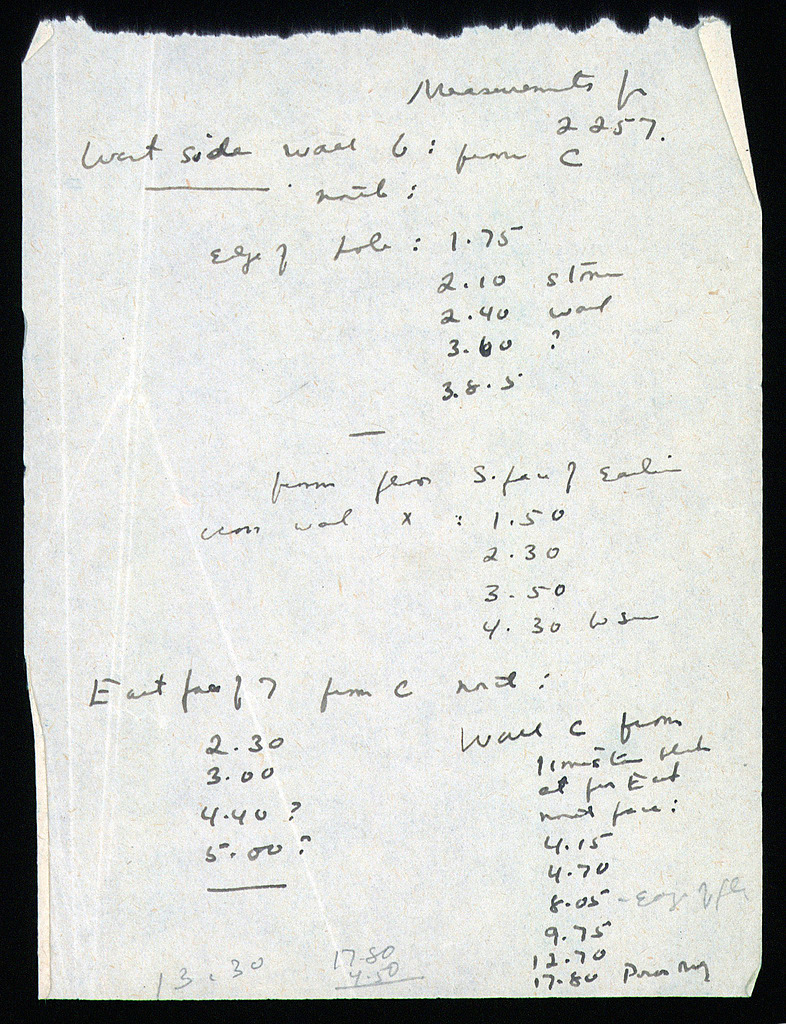 Measurements for
2257.
West side wall 6: from C
north:
edge of hole: 1.75
2.10 stone
2.40 wall
3.60 ?
3.8.5
—
from floor S. face of earlier
cross wall x : 1.50
2.30
3.50
4.30
East face of 7 from C north:
2.30
3.00
4.40 ?
5.00 ?
Wall C from
limestone
at far East
north face:
4.15
4.70
8.05 - Edge of
9.75
12.70
17.80
13.30
17.80
4.50